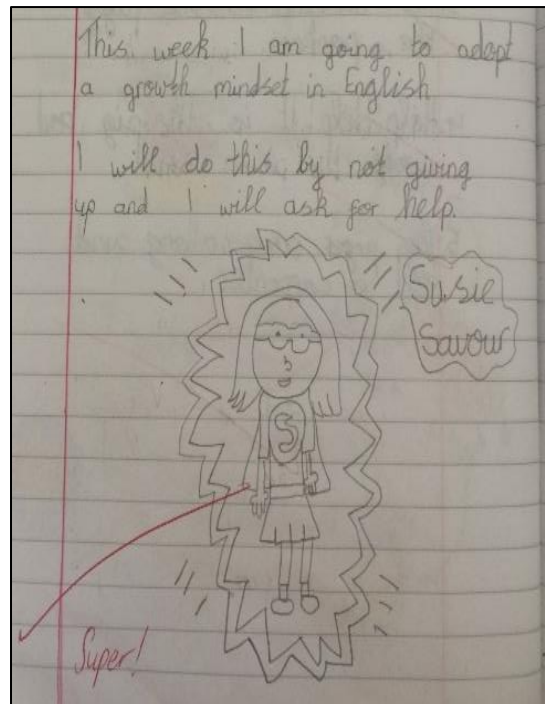 This week I am going to adopt
a growth mindset in English
I will do this by not giving
up and I will ask for help.
Susie
Savour
S
Super!